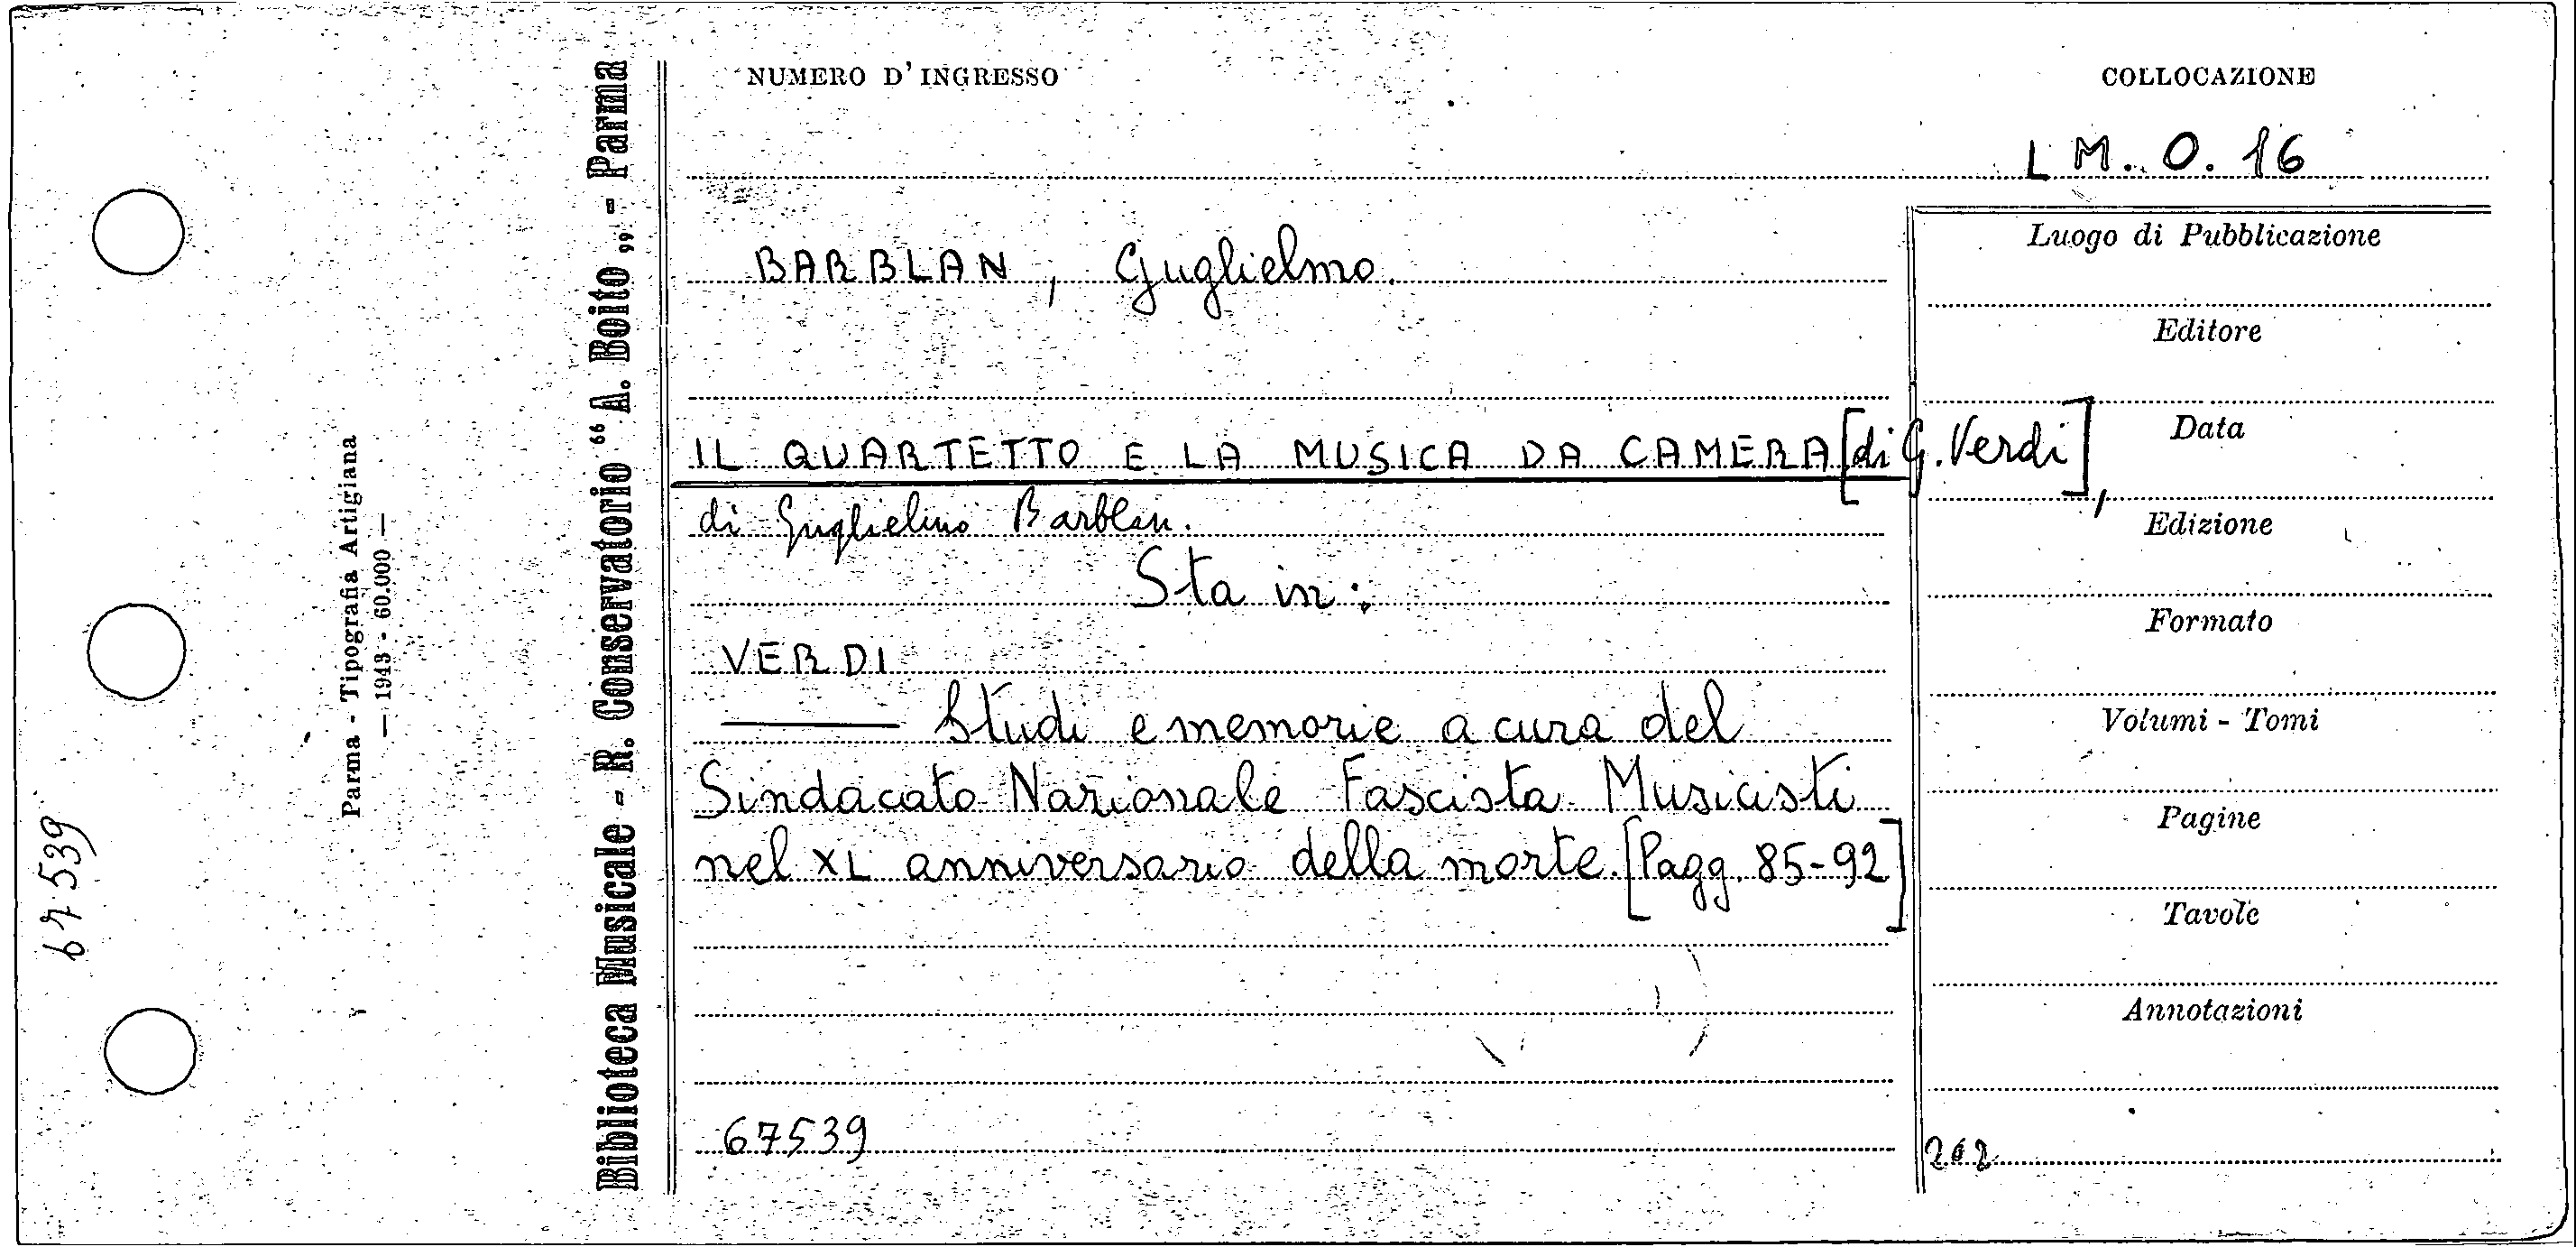 NUMERO D'INGRESSO
COLLOCAZIONE
L M. O. 16
BARBLAN, Guglielmo.
IL QUARTETTO E LA MUSICA DA CAMERA [di G. Verdi],
di Guglielmo Barblan.
Sta in:
VERDI
——— Studi e memorie a cura del
Sindacato Nazionale Fascista Musicisti
nel XL anniversario della morte. [Pagg. 85-92]
67539
Luogo di Pubblicazione
Editore
Data
Edizione
Formato
Volumi - Tomi
Pagine
Tavole
Annotazioni
262
Biblioteca Musicale - R. Conservatorio “A. Boito„ - Parma
Parma - Tipografia Artigiana
— 1943 - 60.000 —
67539